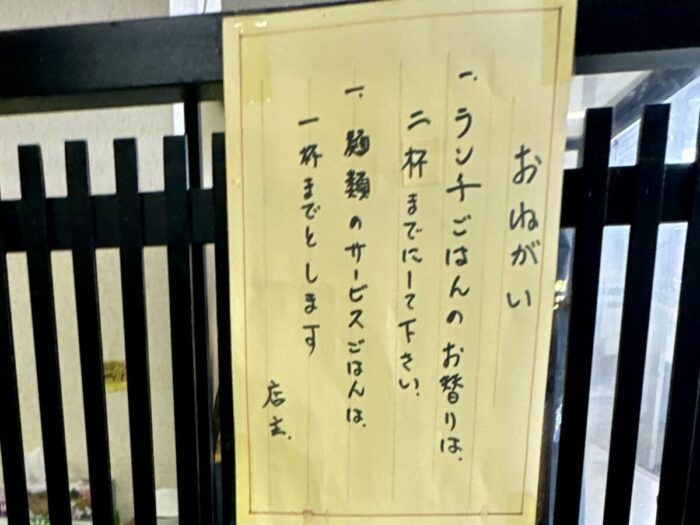 おねがい
一、ランチごはんのお替りは、
二杯までにして下さい、
一、麺類のサービスごはんは、
一杯までとします
店主、